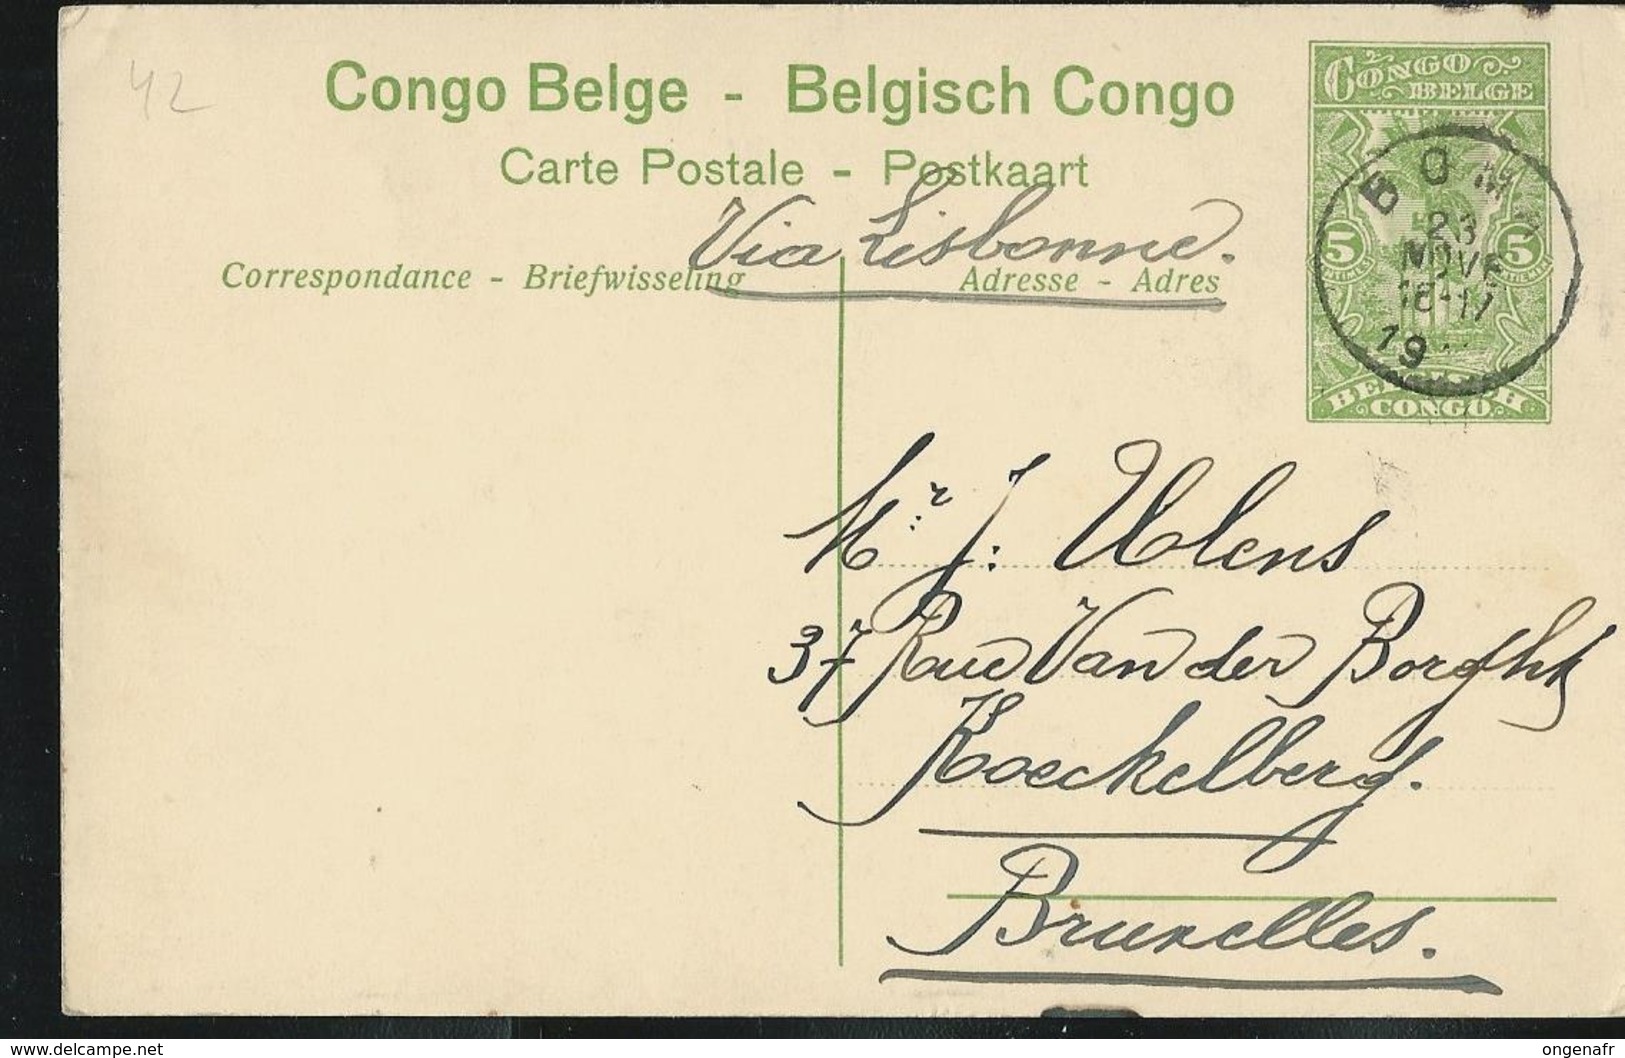 42
Congo Belge - Belgisch Congo
Carte Postale - Postkaart
Via Lisbonne.
Correspondance - Briefwisseling
Adresse - Adres
CONGO
BELGE
5 5
CENTIMES
BELGISCH
CONGO
BOMA
23
NOVE
16-17
19
Mr J. Uolens
37 Rue Van der Borght
Koeckelberg.
Bruxelles.
www.delcampe.net
ongenafr